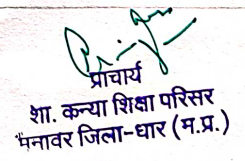 प्राचार्य
शा. कन्या शिक्षा परिसर
मनावर जिला-धार (म.प्र.)